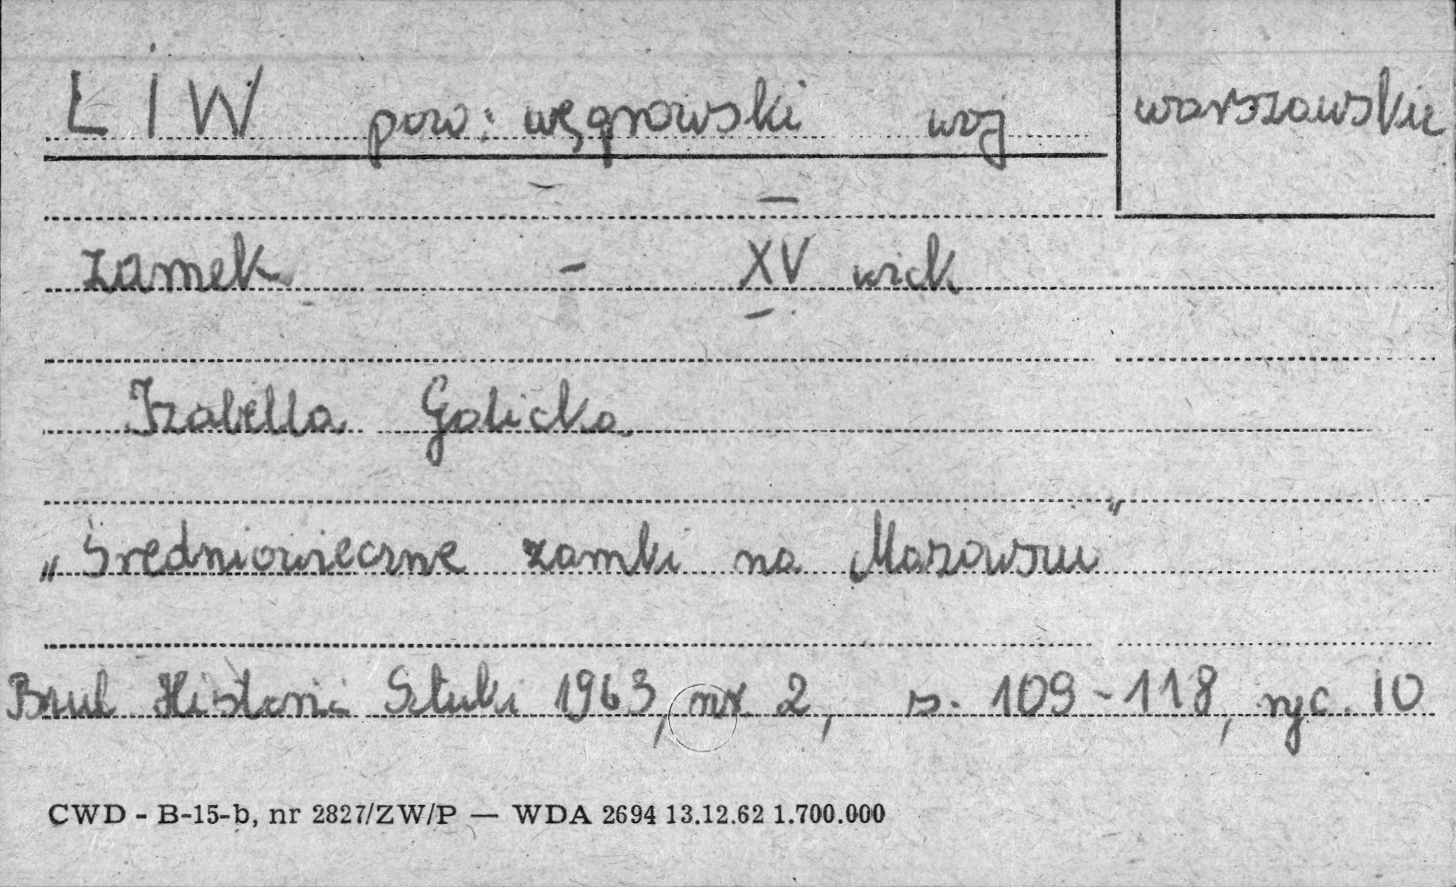 LIW pow: węgrowski woj warszawskie
zamek - XV wiek
Izabella Galicka
„Średniowieczne zamki na Mazowszu"
Biul Historii Sztuki 1963, nr. 2, s. 109-118, ryc. 10
CWD - B-15-b, nr 2827/ZW/P — WDA 2694 13.12.62 1.700.000